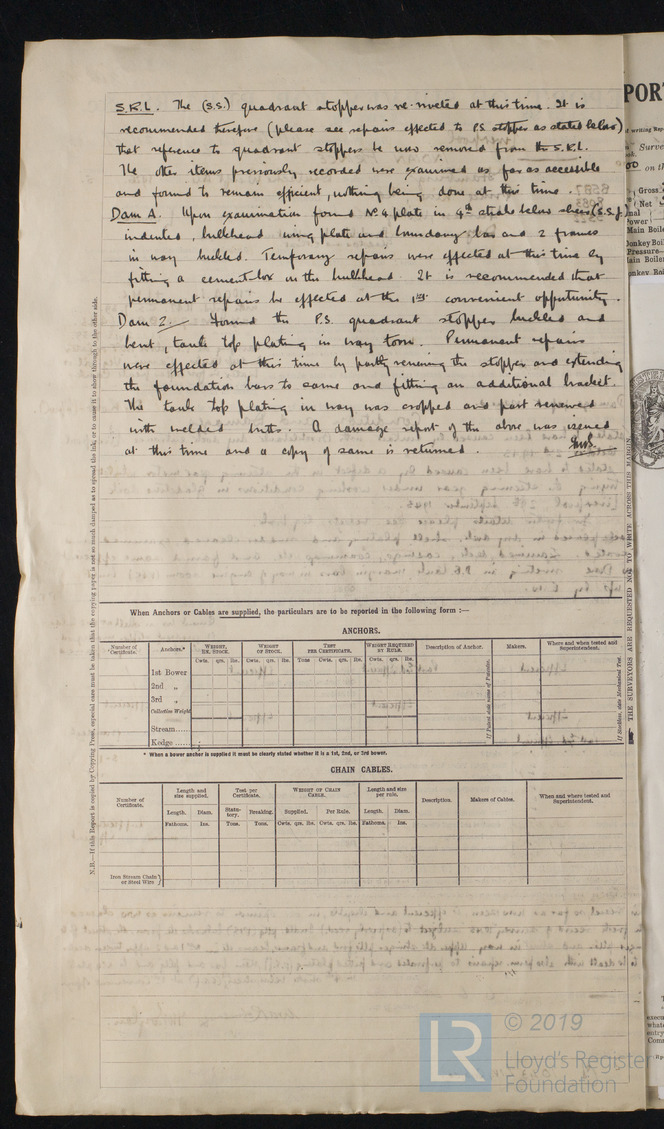 S.R.L. The (S.S.) quadrant stopper was re-riveted at this time. It is
recommended therefore (please see repairs effected to P.S. stopper as stated below)
that reference to quadrant stoppers be now removed from the S.R.L.
The other items previously recorded were examined as far as accessible
and found to remain efficient, nothing being done at this time.
Dam 1. Upon examination found No 4 plate in 9th strake below sheer (S.S.)
indented, bulkhead wing plate and boundary bar and 2 frames
in way buckled. Temporary repairs were effected at this time by
fitting a cement box in the bulkhead. It is recommended that
permanent repairs be effected at the 1st convenient opportunity.
Dam 2 Found the P.S. quadrant stopper buckled and
bent, tank top plating in way torn. Permanent repairs
were effected at this time by partly renewing the stopper and extending
the foundation bars to same and fitting an additional bracket.
The tank top plating in way was cropped and part renewed
with welded butts. A damage report of the above was issued
at this time and a copy of same is returned.
When Anchors or Cables are supplied, the particulars are to be reported in the following form :—
ANCHORS.
Number of Certificate. Anchors.* WEIGHT, EX. STOCK. WEIGHT OF STOCK. TEST PER CERTIFICATE. WEIGHT REQUIRED BY RULE. Description of Anchor. Makers. Where and when tested and Superintendent.
Cwts. qrs. lbs. Cwts. qrs. lbs. Tons Cwts. qrs. lbs. Cwts. qrs. lbs.
1st Bower
2nd „
3rd „
Collective Weight
Stream
Kedge
If Patent state name of Patentee.
If Stockless, state Mechanical Test.
* When a bower anchor is supplied it must be clearly stated whether it is a 1st, 2nd, or 3rd bower.
CHAIN CABLES.
Number of Certificate. Length and size supplied. Test per Certificate. WEIGHT OF CHAIN CABLE. Length and size per rule. Description. Makers of Cables. When and where tested and Superintendent.
Length. Diam. Statutory. Breaking. Supplied. Per Rule. Length. Diam.
Fathoms. Ins. Tons. Tons. Cwts. qrs. lbs. Cwts. qrs. lbs. Fathoms. Ins.
Iron Stream Chain or Steel Wire
N.B.—If this Report is copied by Copying Press, especial care must be taken that the copying paper is not so much damped as to spread the ink, or to cause it to show through to the other side.
THE SURVEYORS ARE REQUESTED NOT TO WRITE ACROSS THIS MARGIN.
LR
© 2019
Lloyd's Register
Foundation